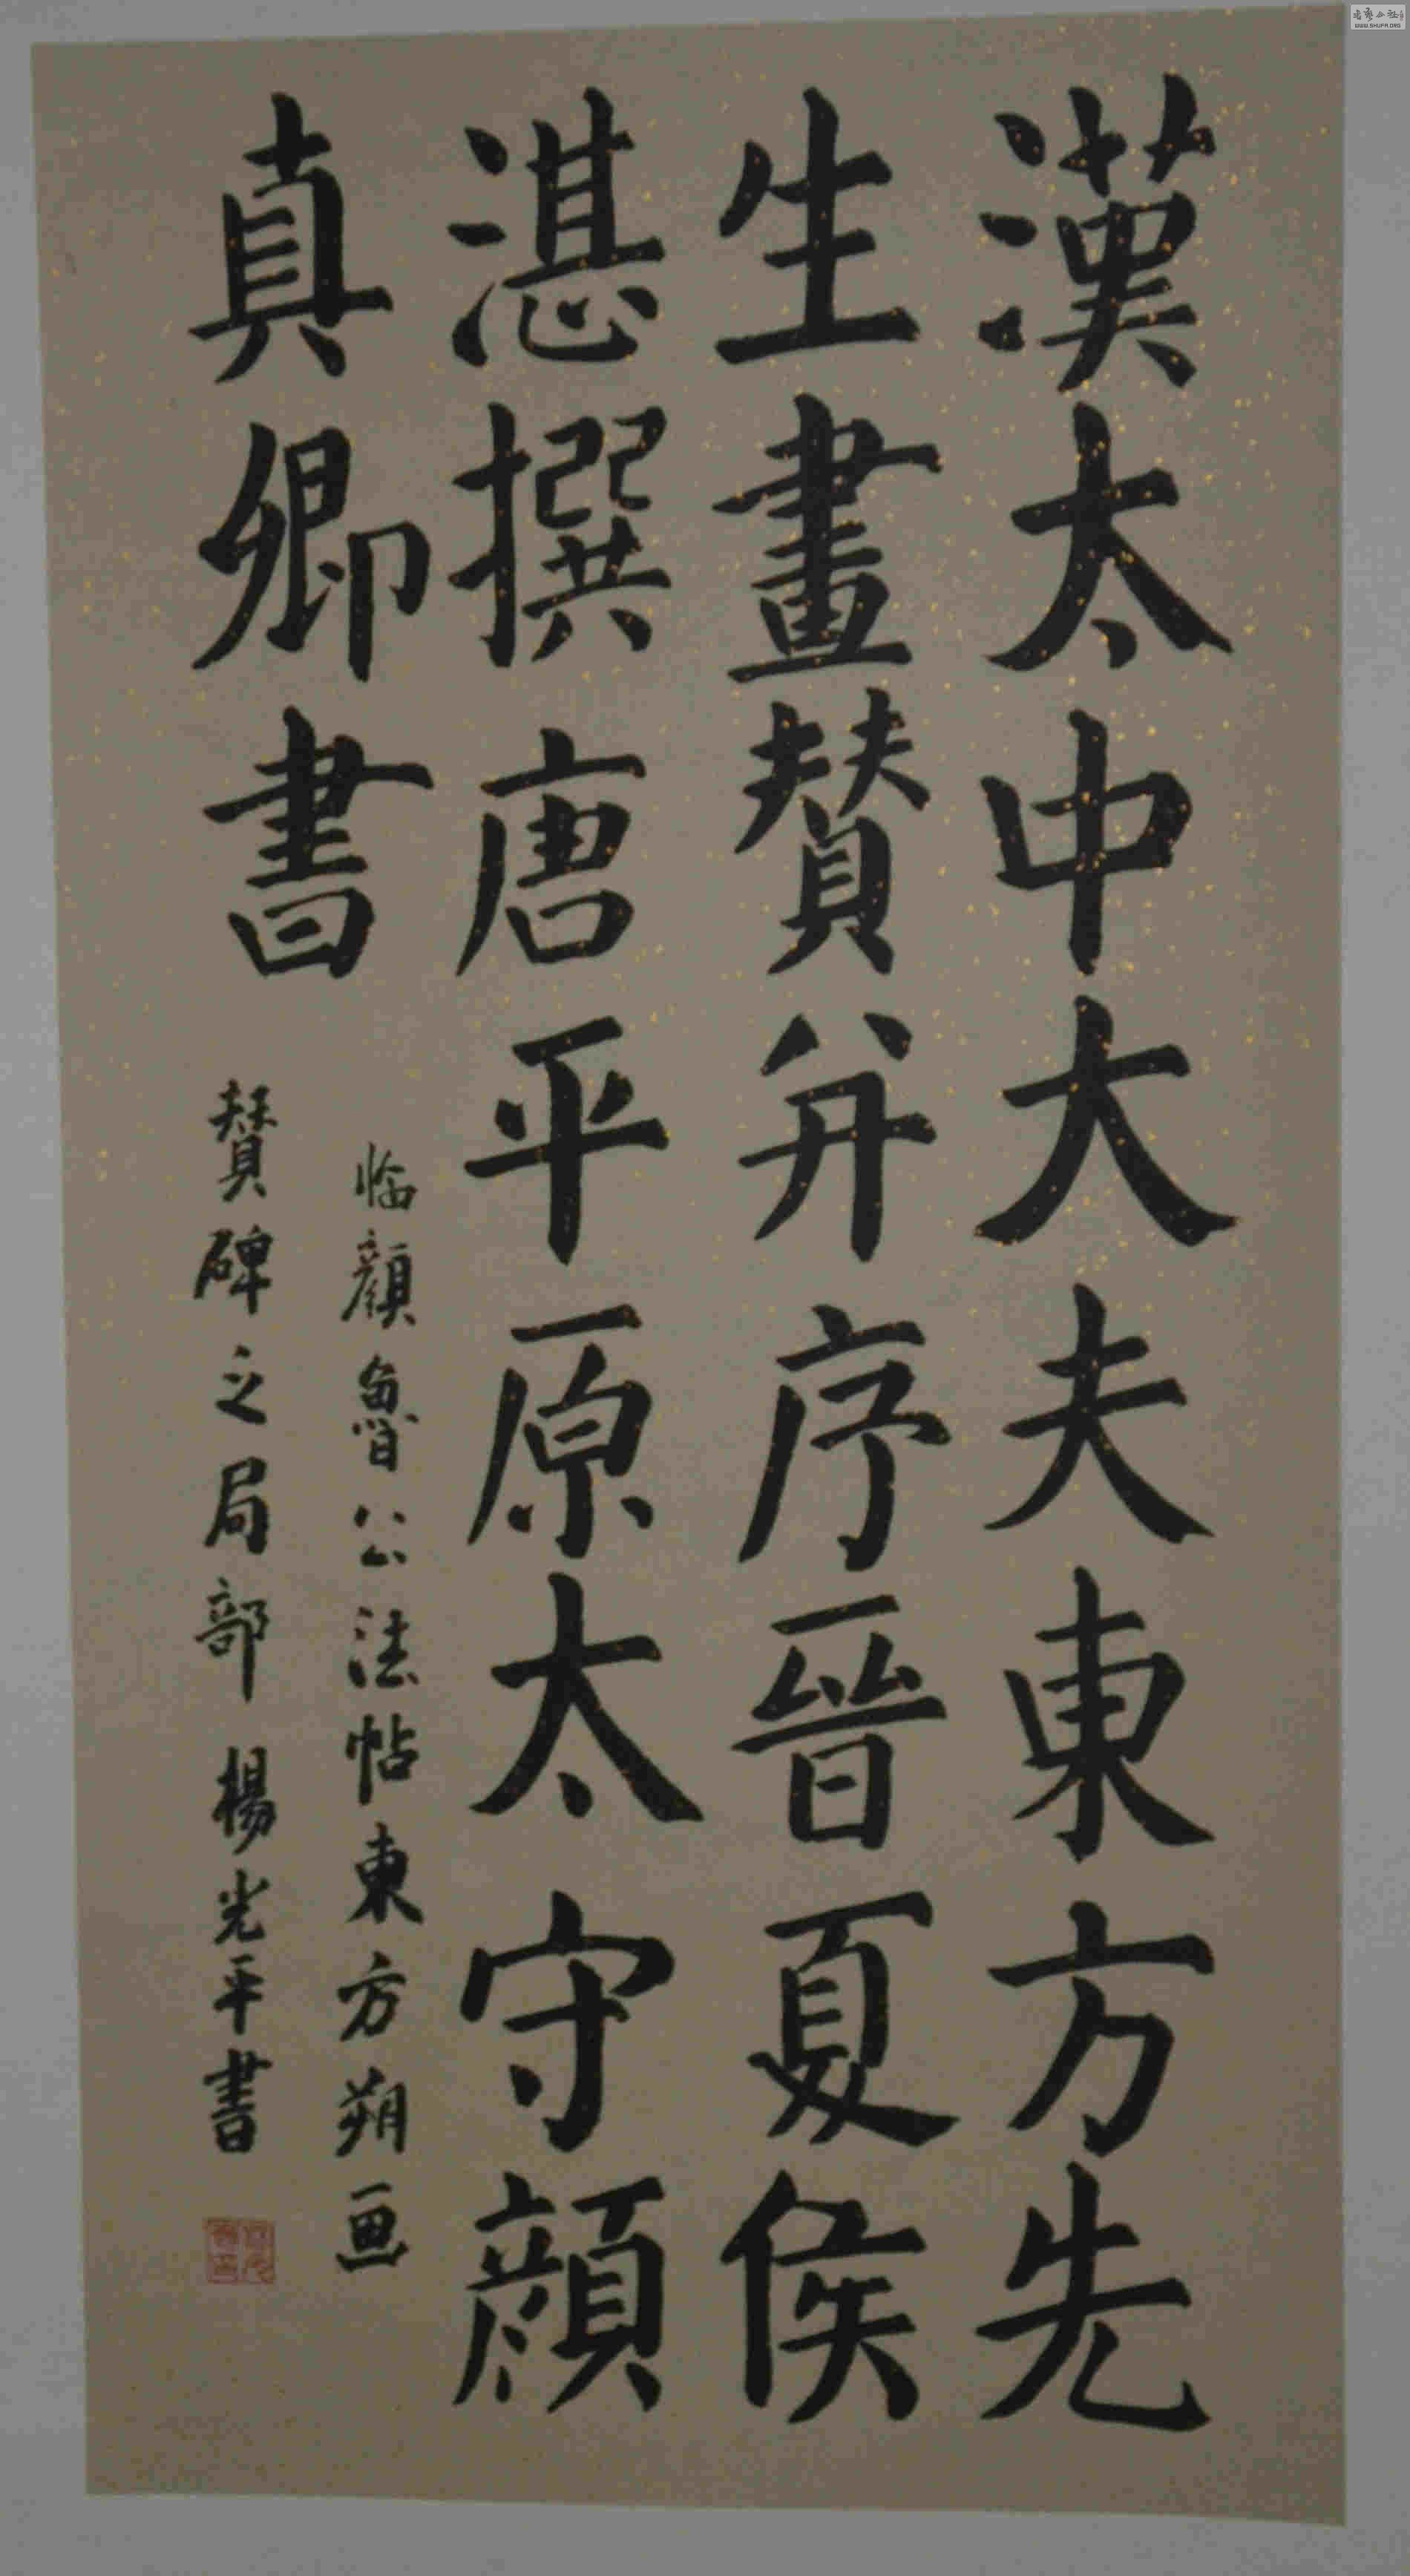 漢太中大夫東方先
生畫贊并序晉夏侯
湛撰唐平原太守顔
真卿書
临顔魯公法帖東方朔画
賛碑之局部 楊光平書
WWW.SHUFA.ORG